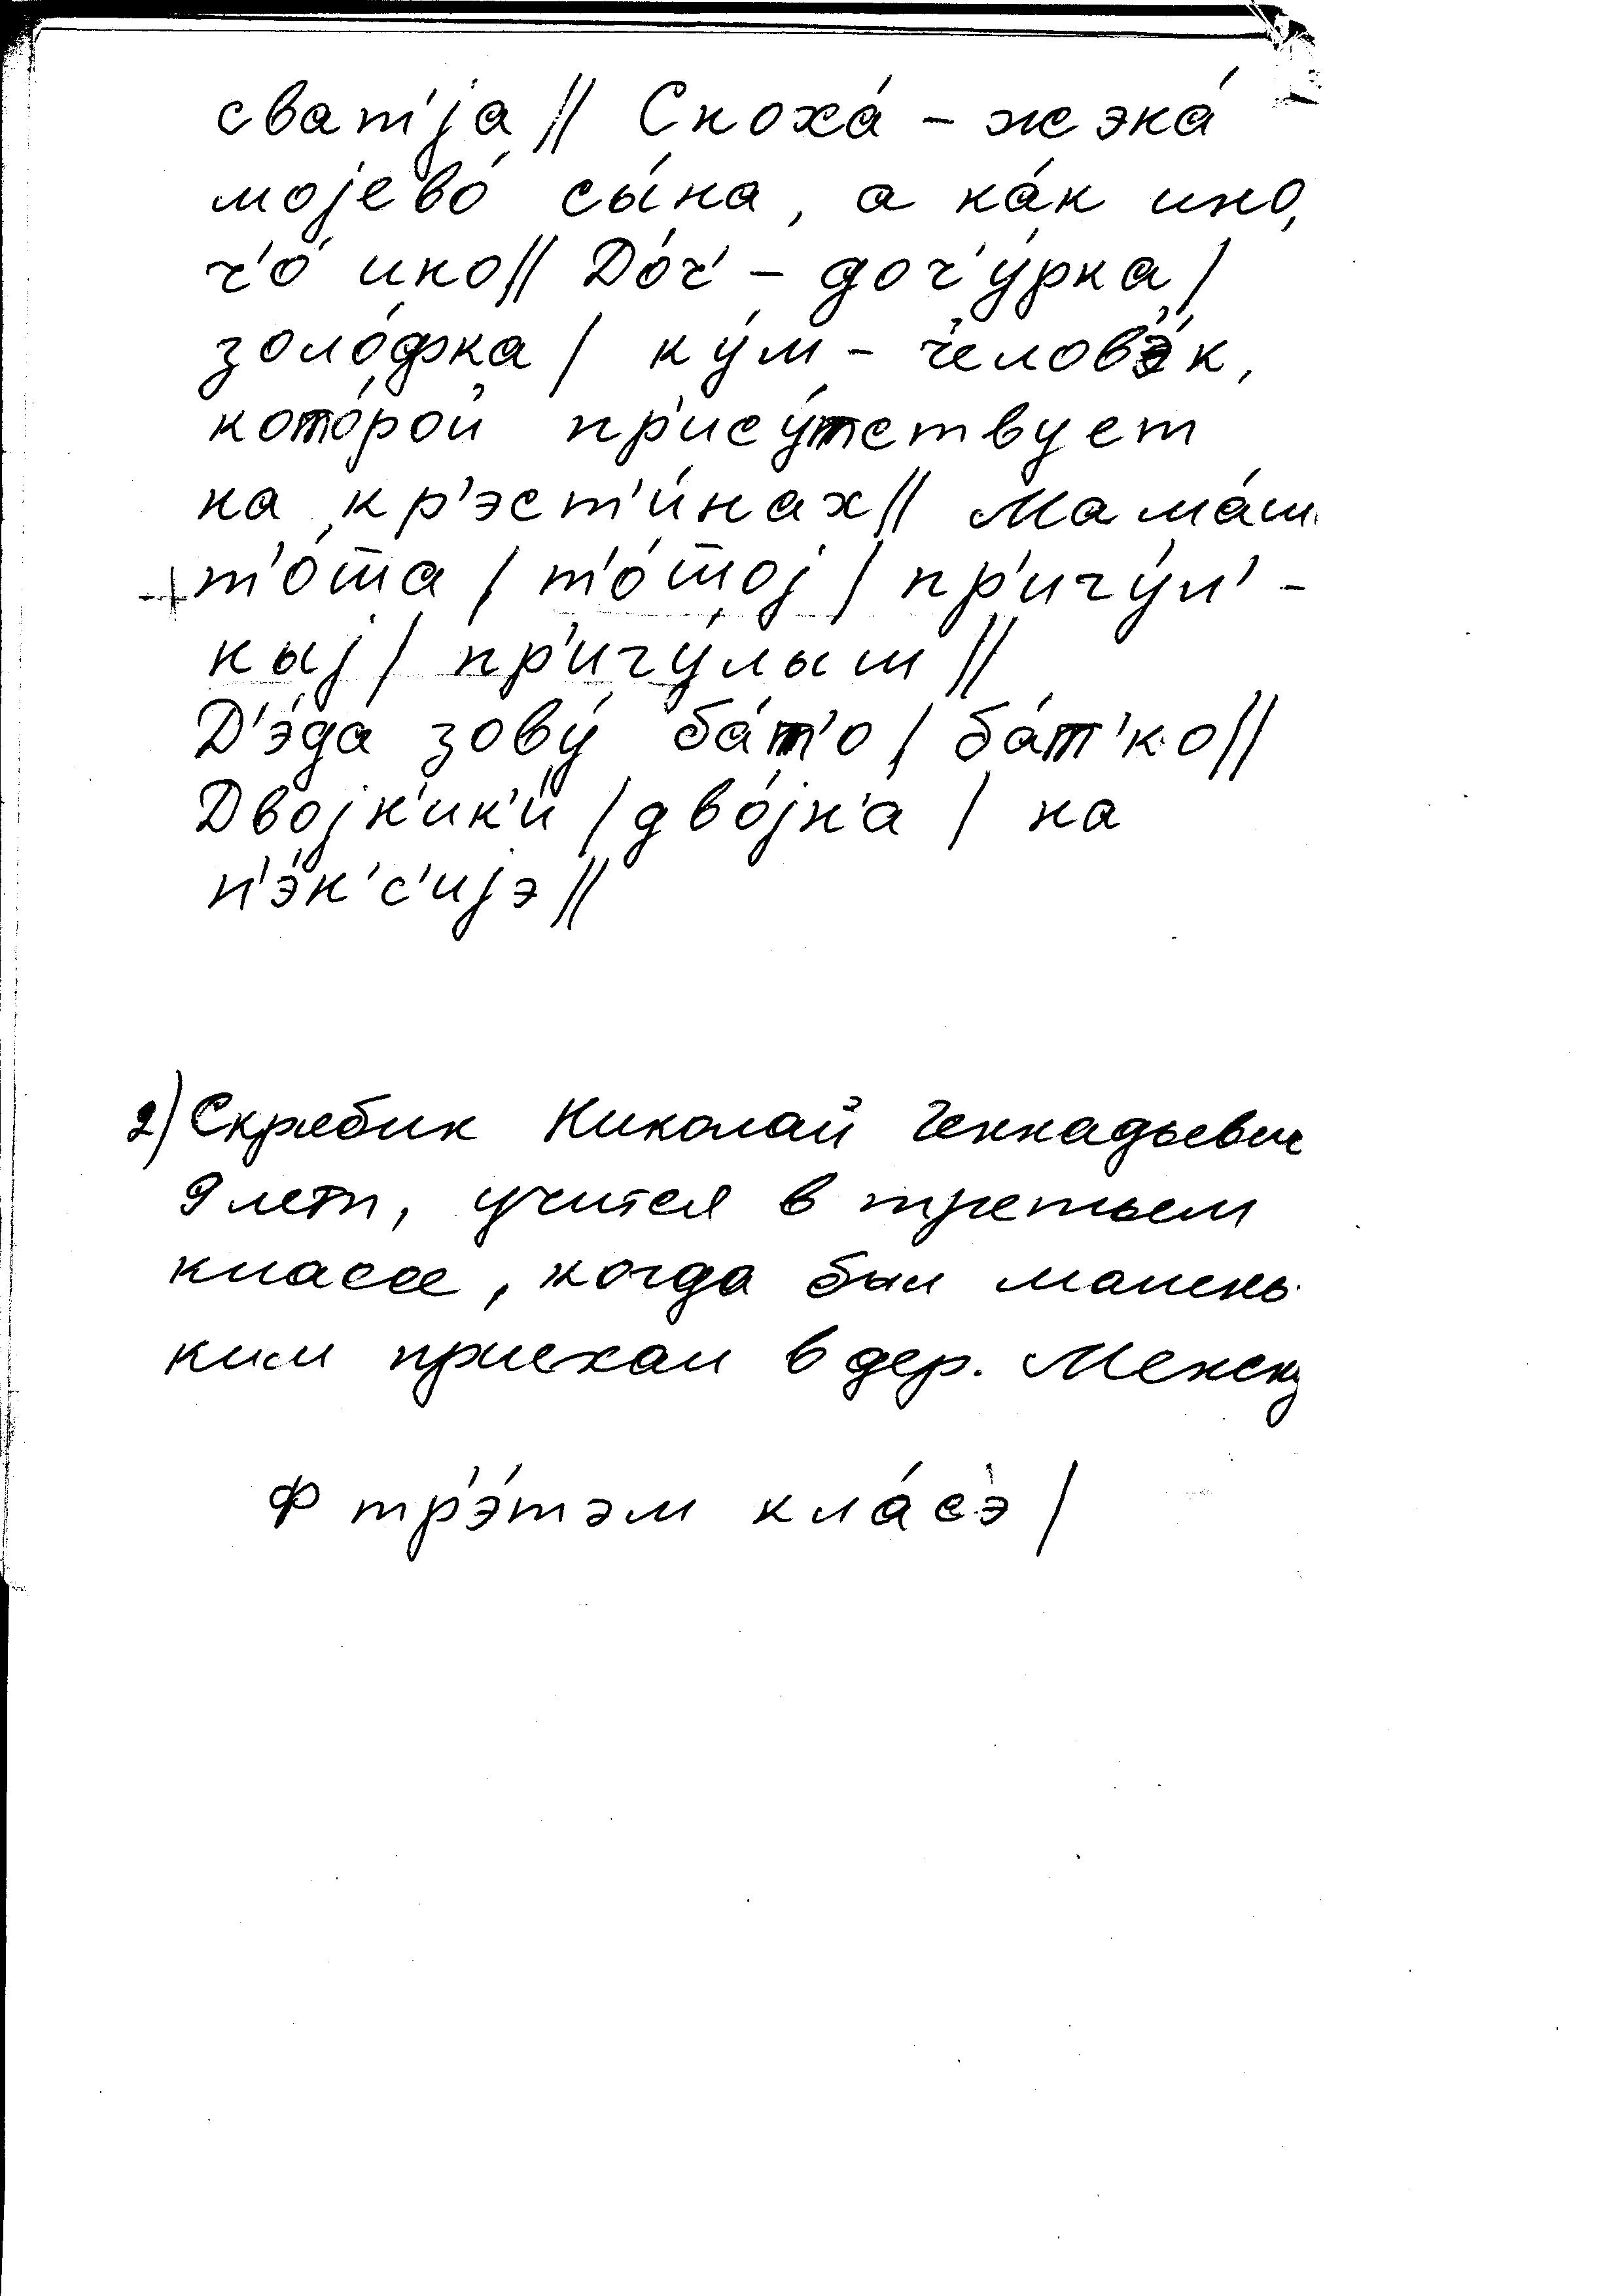 сват'jа || Сноха́ – жэна́
моjево́ сы́на, а ка́к ино,
ч'о́ ино || До́ч' – доч'у́рка |
золо́фка | ку́м – ч'елов'э́к,
кото́рой пр'ису́тствует
на кр'эст'и́нах || Мама́ш
т'о́тта | т'о́тшоj | пр'игу́л'-
ныj | пр'игу́лыш ||
Д'э́да зову́ ба́т'о | ба́т'ко ||
Двоjн'ик'и́ | дво́jн'а | на
п'э́н'с'иjэ ||
2) Скрябик Николай Геннадьевич
9 лет, учится в третьем
классе, когда был малень-
ким приехал в дер. Менску
Ф тр'э́тэм кла́с'э |